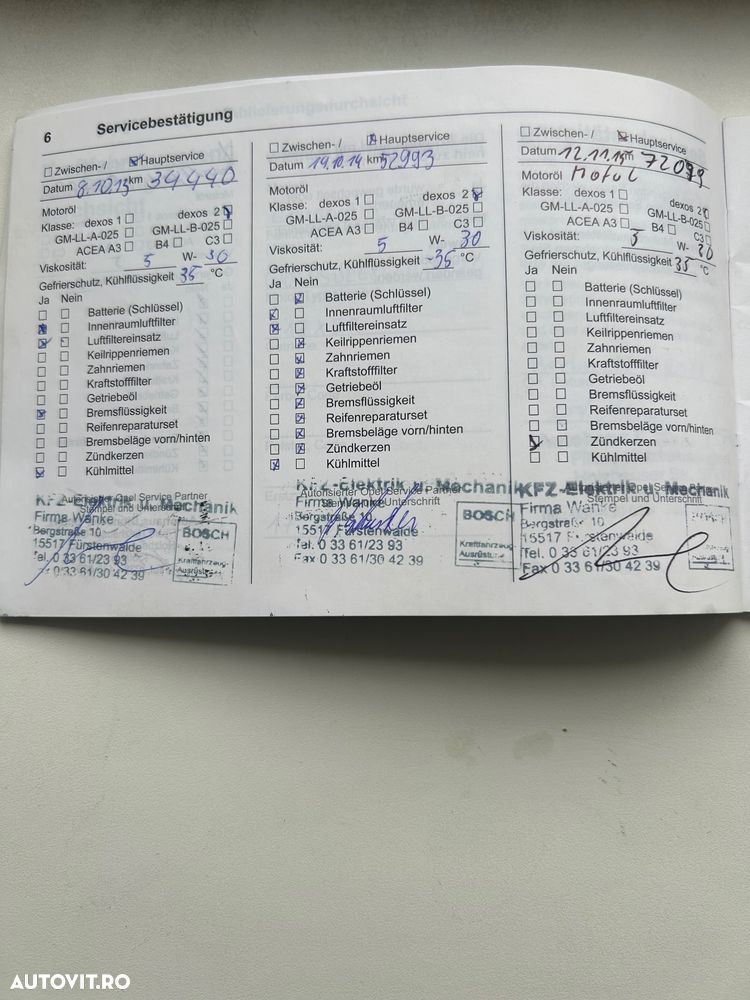 6 Servicebestätigung
Zwischen- / Hauptservice
Datum 8.10.13 km 34440
Motoröl
Klasse: dexos 1 dexos 2
GM-LL-A-025 GM-LL-B-025
ACEA A3 B4 C3
Viskosität: 5 W- 30
Gefrierschutz, Kühlflüssigkeit 35 °C
Ja Nein
Batterie (Schlüssel)
Innenraumluftfilter
Luftfiltereinsatz
Keilrippenriemen
Zahnriemen
Kraftstofffilter
Getriebeöl
Bremsflüssigkeit
Reifenreparaturset
Bremsbeläge vorn/hinten
Zündkerzen
Kühlmittel
Autorisierter Opel Service Partner
Stempel und Unterschrift
KFZ-Elektrik u. Mechanik
Firma Wanke
Bergstraße 10
15517 Fürstenwalde
Tel. 0 33 61/23 93
Fax 0 33 61/30 42 39
BOSCH
Kraftfahrzeug-
Ausrüstung
Zwischen- / Hauptservice
Datum 14.10.14 km 52993
Motoröl
Klasse: dexos 1 dexos 2
GM-LL-A-025 GM-LL-B-025
ACEA A3 B4 C3
Viskosität: 5 W- 30
Gefrierschutz, Kühlflüssigkeit -35 °C
Ja Nein
Batterie (Schlüssel)
Innenraumluftfilter
Luftfiltereinsatz
Keilrippenriemen
Zahnriemen
Kraftstofffilter
Getriebeöl
Bremsflüssigkeit
Reifenreparaturset
Bremsbeläge vorn/hinten
Zündkerzen
Kühlmittel
Autorisierter Opel Service Partner
Stempel und Unterschrift
KFZ-Elektrik u. Mechanik
Firma Wanke
Bergstraße 10
15517 Fürstenwalde
Tel. 0 33 61/23 93
Fax 0 33 61/30 42 39
BOSCH
Kraftfahrzeug-
Ausrüstung
Zwischen- / Hauptservice
Datum 12.11.15 km 72079
Motoröl Motul
Klasse: dexos 1 dexos 2
GM-LL-A-025 GM-LL-B-025
ACEA A3 B4 C3
Viskosität: 5 W- 30
Gefrierschutz, Kühlflüssigkeit 35 °C
Ja Nein
Batterie (Schlüssel)
Innenraumluftfilter
Luftfiltereinsatz
Keilrippenriemen
Zahnriemen
Kraftstofffilter
Getriebeöl
Bremsflüssigkeit
Reifenreparaturset
Bremsbeläge vorn/hinten
Zündkerzen
Kühlmittel
Autorisierter Opel Service Partner
Stempel und Unterschrift
KFZ-Elektrik u. Mechanik
Firma Wanke
Bergstraße 10
15517 Fürstenwalde
Tel. 0 33 61/23 93
Fax 0 33 61/30 42 39
AUTOVIT.RO